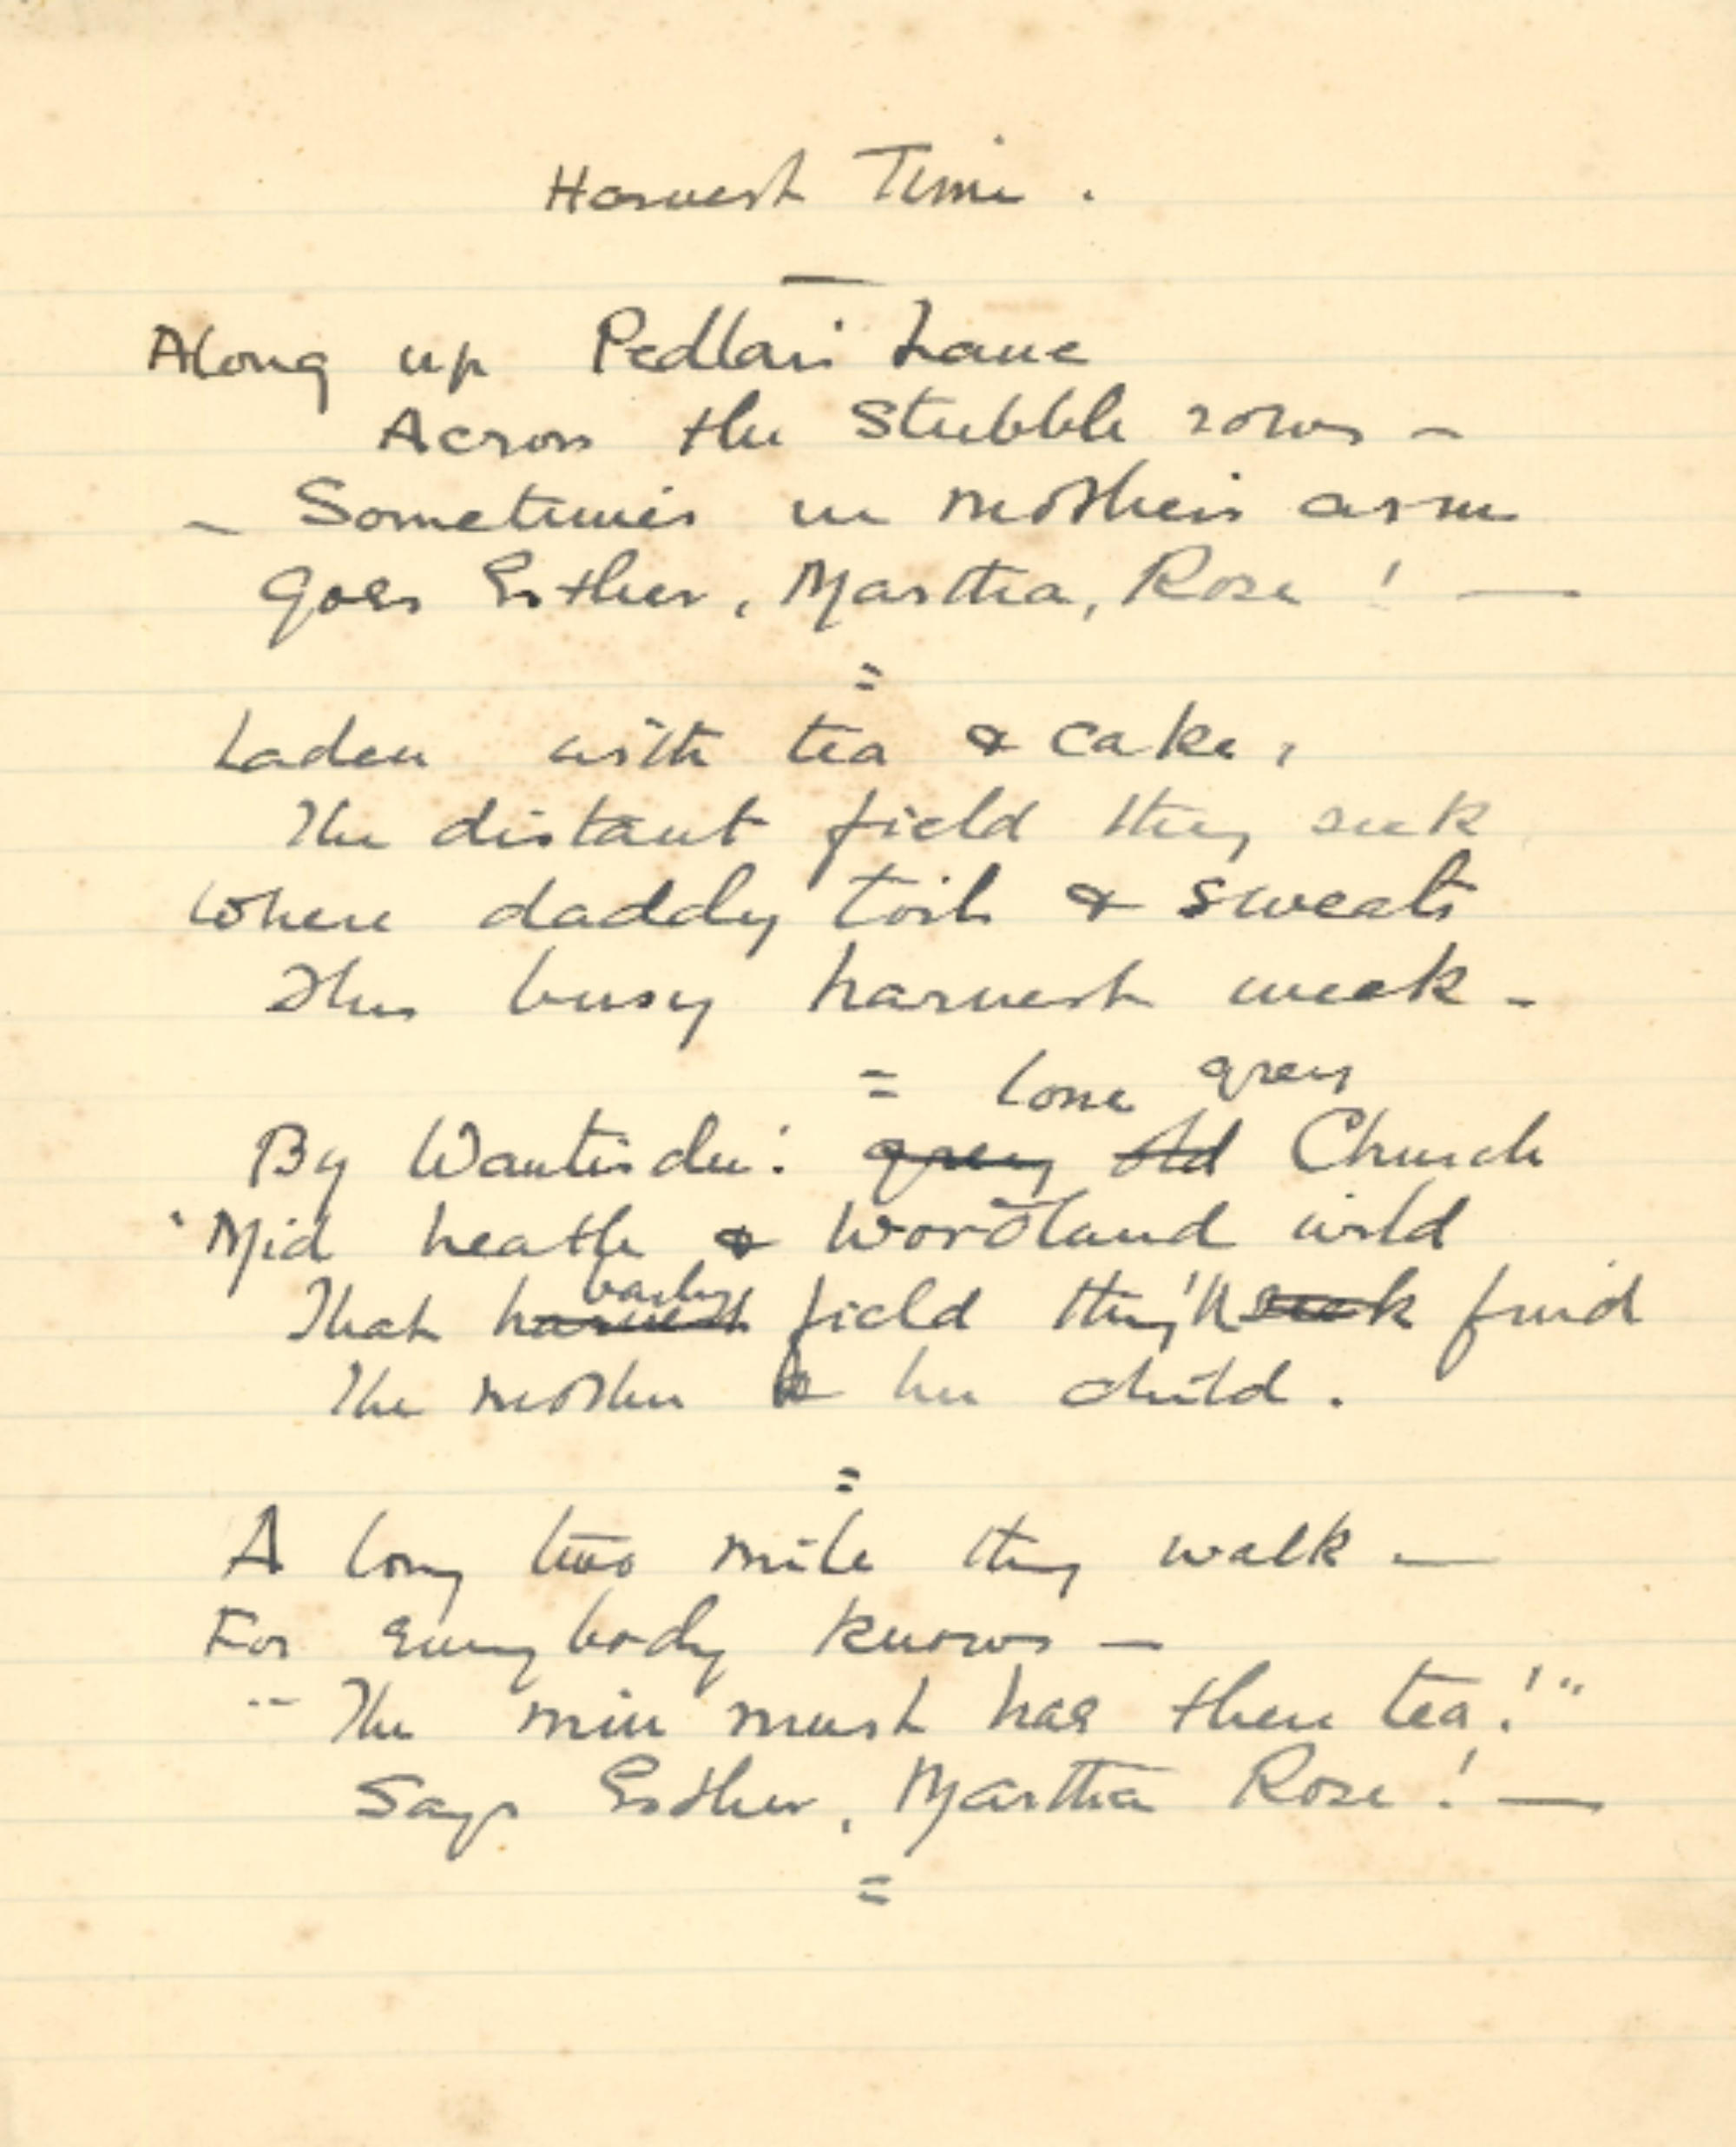 Harvest Time.
Along up Pedlars' Lane
Across the Stubble rows –
– Sometimes in mothers arms
goes Esther, Martha, Rose! —
=
Laden with tea & cake,
The distant field they seek
Where daddy toils & sweats
This busy harvest week -
= lone grey
By Wantisden's grey old Church
'Mid heath & woodland wild
barley
That harvest field they'll seek find
The mother & her child.
=
A long two mile they walk —
For everybody knows —
"The min must hae there tea!"
Says Esther, Martha Rose! —
=